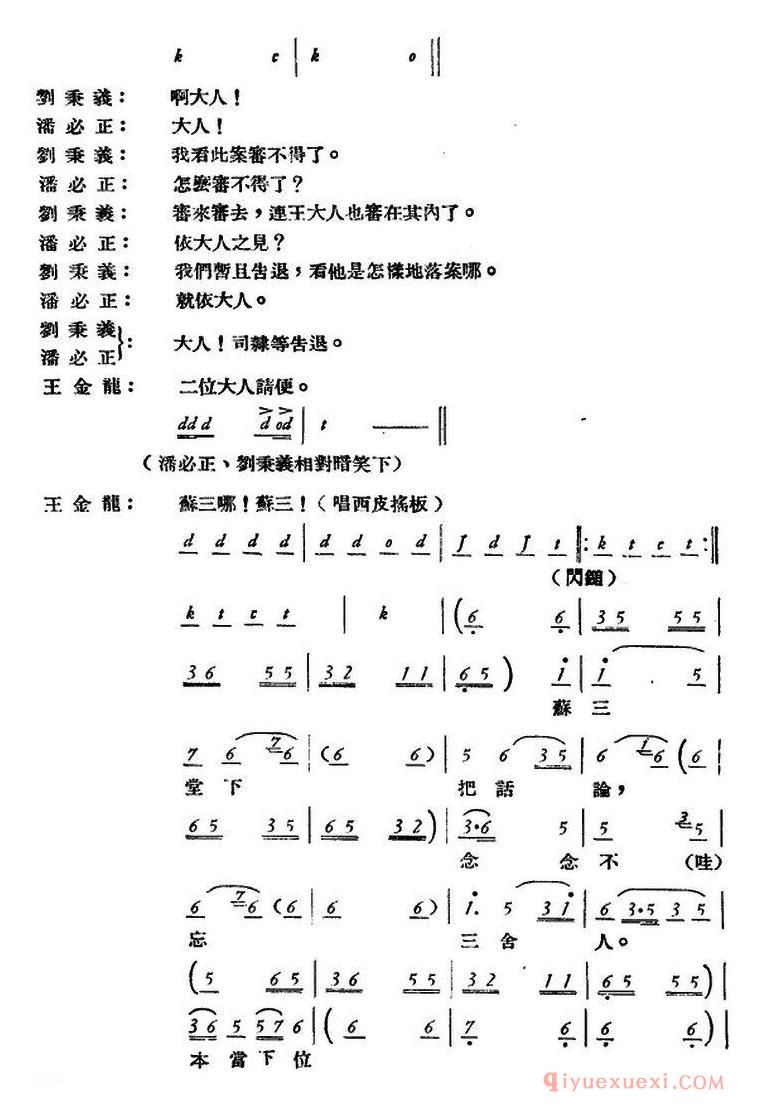 k c | k o ||
劉秉義： 啊大人！
潘必正： 大人！
劉秉義： 我看此案審不得了。
潘必正： 怎麽審不得了？
劉秉義： 審來審去，連王大人也審在其內了。
潘必正： 依大人之見？
劉秉義： 我們暫且告退，看他是怎樣地落案哪。
潘必正： 就依大人。
劉秉義
潘必正： 大人！司隸等告退。
王金龍： 二位大人請便。
ddd d od | t — ||
（潘必正、劉秉義相對暗笑下）
王金龍： 蘇三哪！蘇三！（唱西皮搖板）
d d d d | d d o d | J d J t ||: k t c t :||
（閃鎚）
k t c t | k | (6 6 | 35 55 |
36 55 | 32 11 | 65) i | i . 5 |
蘇三
7 6 7 6 | (6 6) | 5 6 35 | 6 i 6 (6 |
堂下 把話 論，
65 35 | 65 32) | 3·6 5 | 5 3 5 |
念 念不 (哇)
6 7 6 (6 | 6 6) | i. 5 3i | 6 3·5 3 5 |
忘 三舍 人。
(5 65 | 36 55 | 32 11 | 65 55) |
36 5 57 6 | (6 6 | 7 6 | 6 6) |
本當下位
qiyuexuexi.com